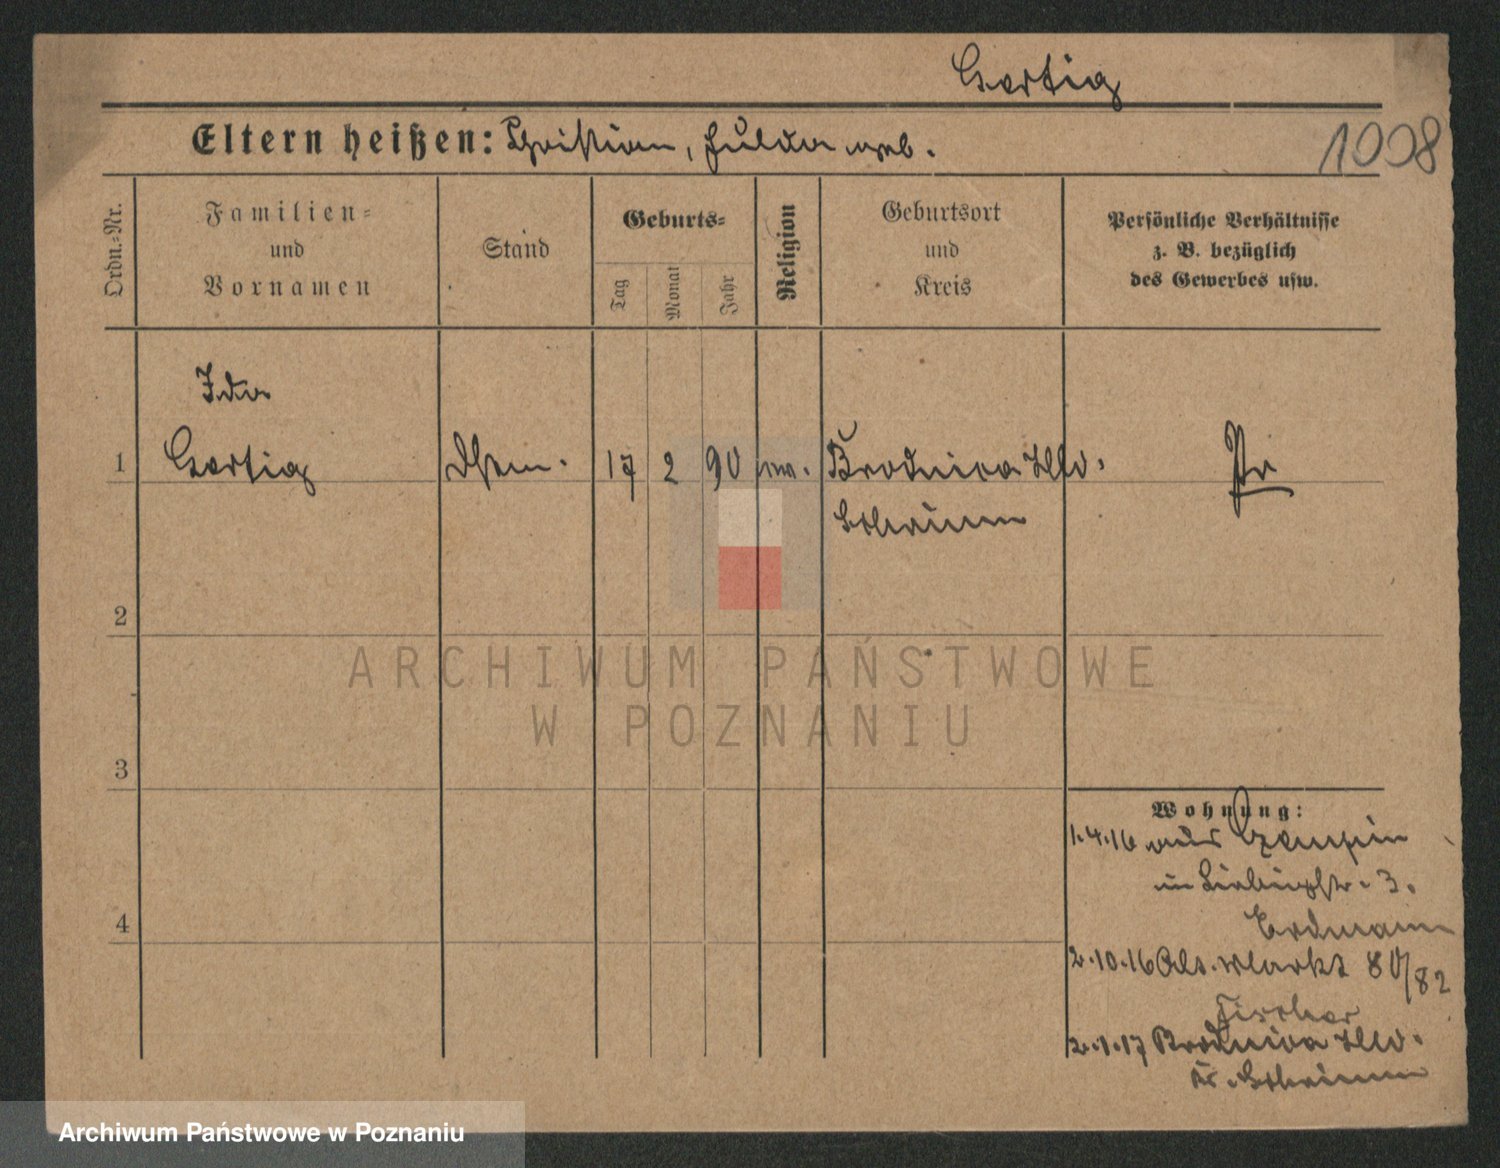 Gertig
Eltern heißen: Christian, Hulda geb.
1008
Ordn.-Nr.
Familien-
und
Vornamen
Stand
Geburts-
Tag
Monat
Jahr
Religion
Geburtsort
und
Kreis
Persönliche Verhältnisse
z. B. bezüglich
des Gewerbes usw.
Ida
1 Gertig 17 2 90 ev. Brodnica Hld. Pr
Schrimm
2
3
4
Wohnung:
1.4.16 aus Czempin
in 3.
Erdmann
2.10.16 Alt. Markt 80/82
Fischer
2.1.17 Brodnica Hld.
Kr. Schrimm
ARCHIWUM PAŃSTWOWE
W POZNANIU
Archiwum Państwowe w Poznaniu